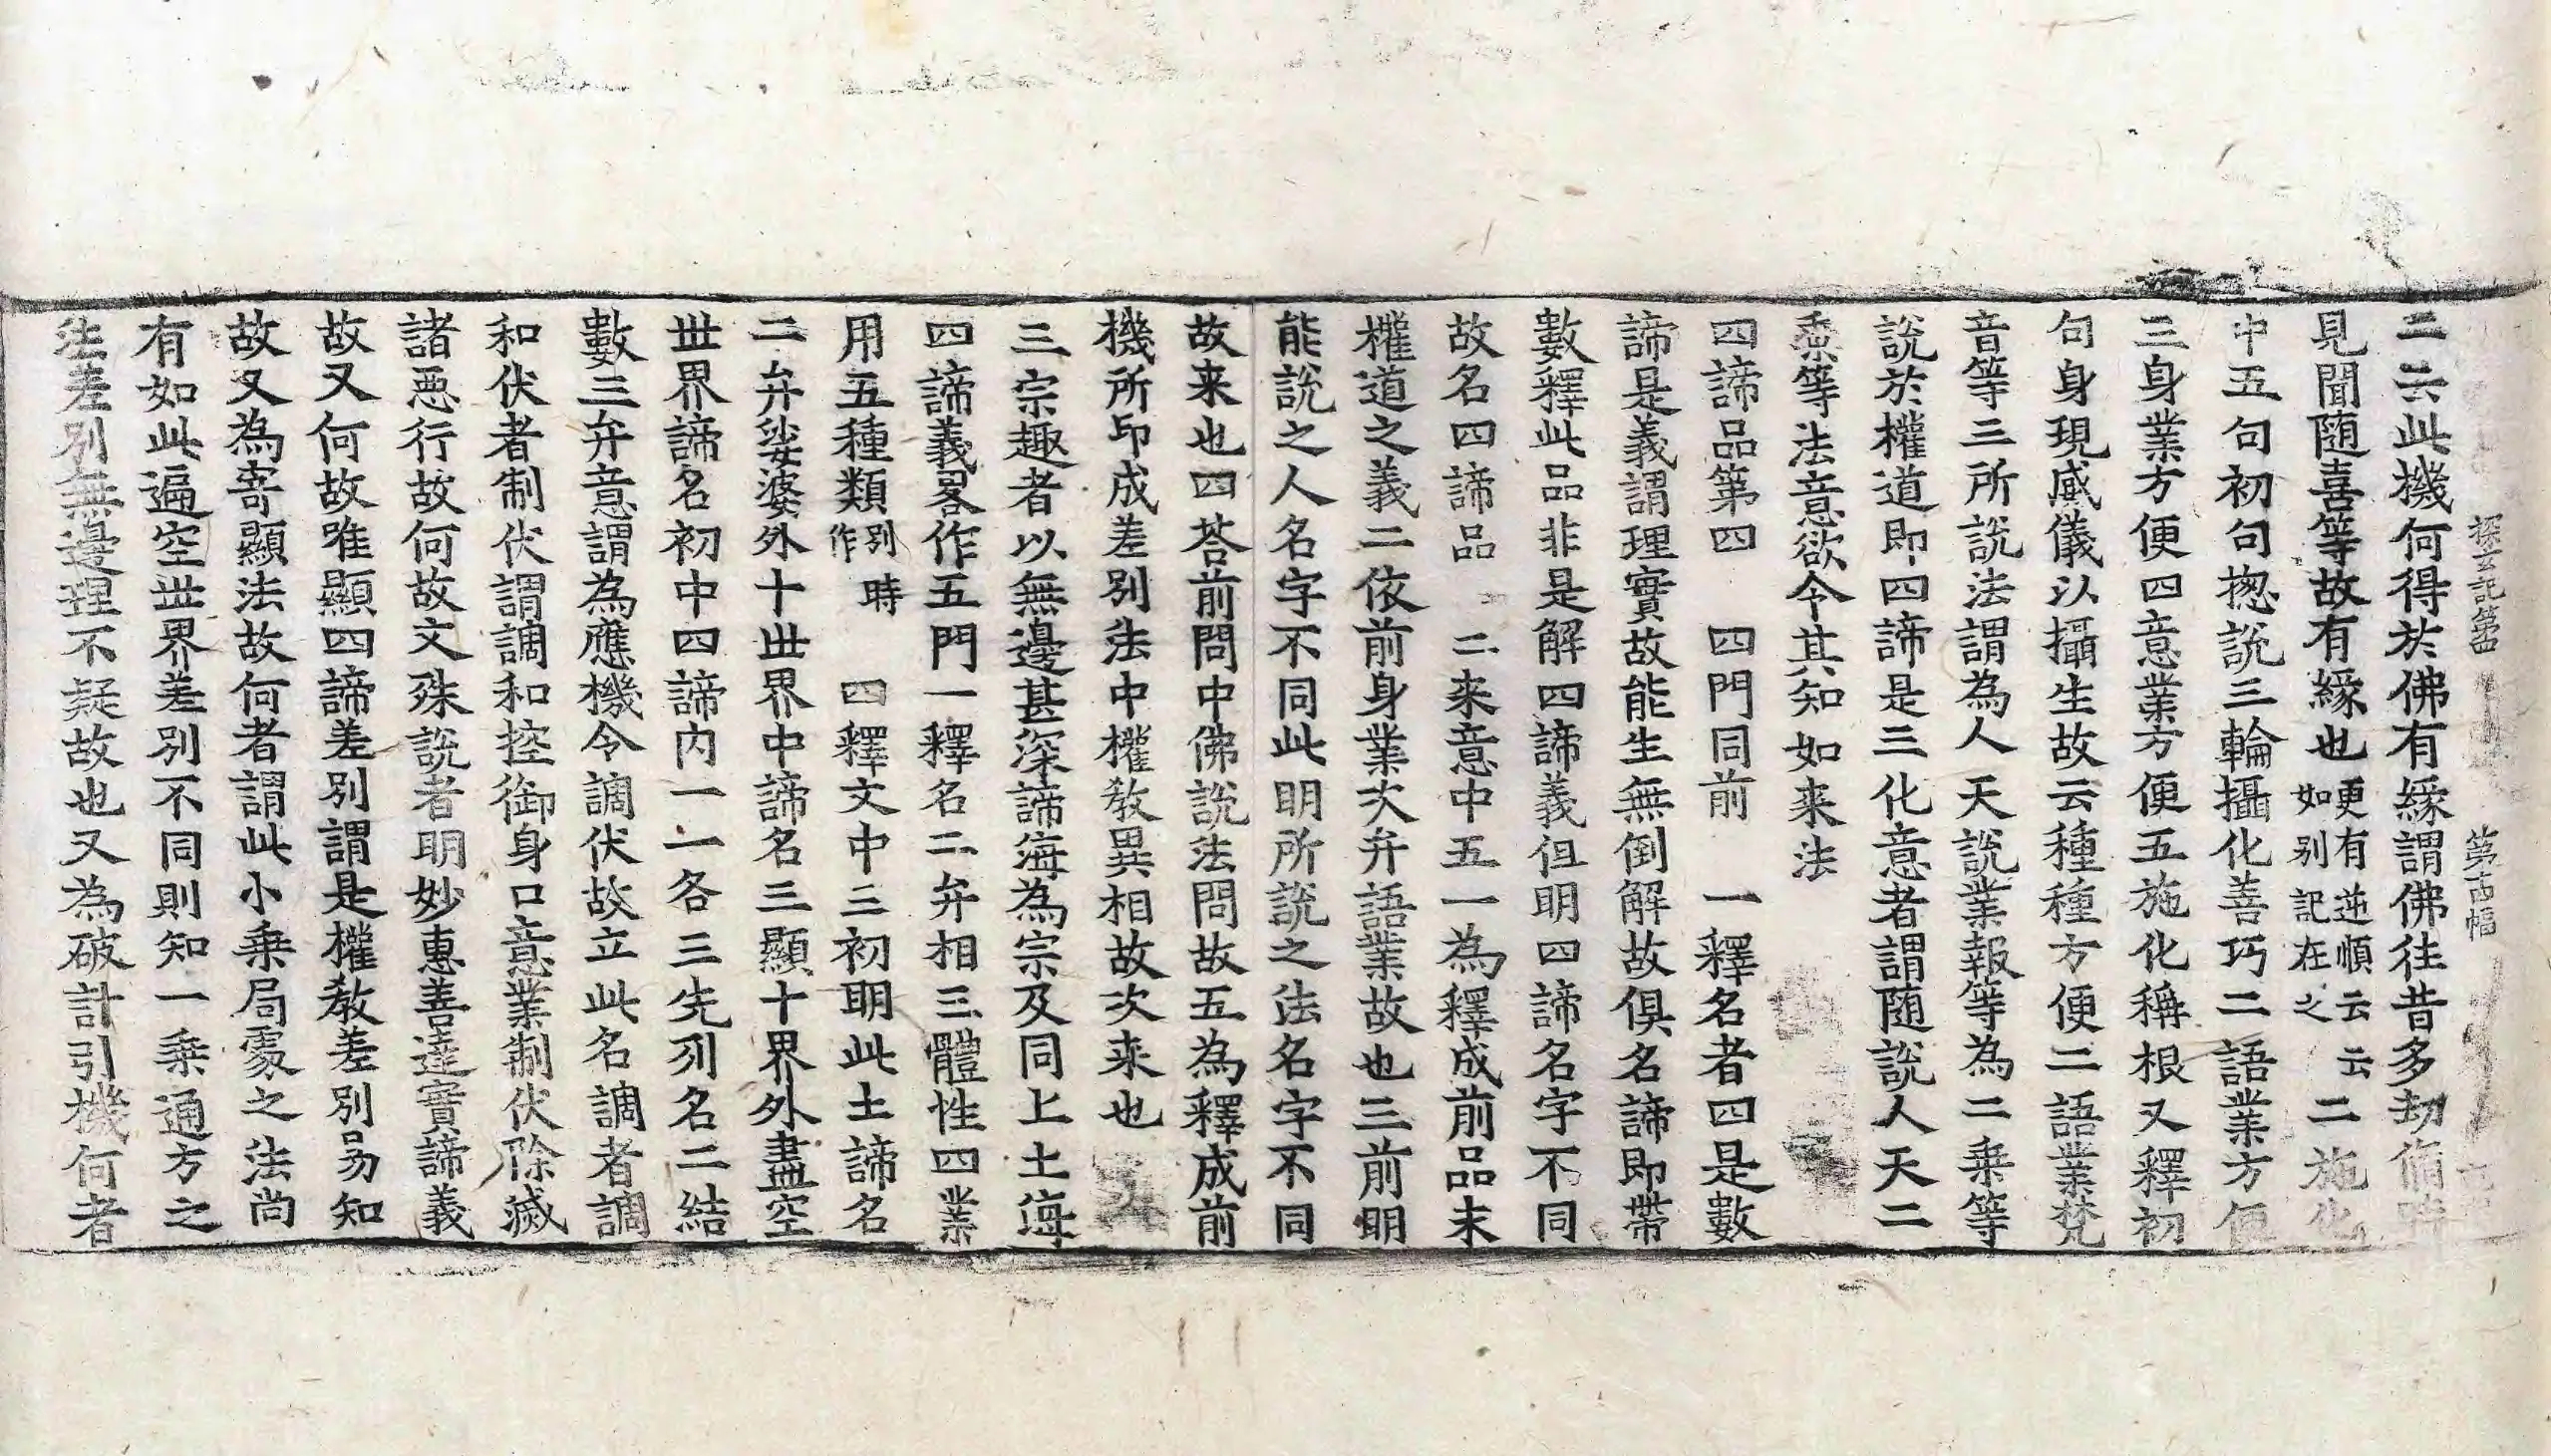 探玄記第四 第十四幅
二云此機何得於佛有緣謂佛往昔多劫脩時
見聞随喜等故有緣也更有逆順云云如别記在之二施化
中五句初句揔說三輪攝化善巧二語業方便
三身業方便四意業方便五施化稱根又釋初
句身現威儀以攝生故云種種方便二語業梵
音等三所說法謂為人天說業報等為二乗等
說於權道即四諦是三化意者謂随說人天二
乗等法意欲令其知如来法
四諦品第四 四門同前 一釋名者四是數
諦是義謂理實故能生無倒解故俱名諦即帶
數釋此品非是解四諦義但明四諦名字不同
故名四諦品 二来意中五一為釋成前品末
權道之義二依前身業次弁語業故也三前明
能說之人名字不同此明所說之法名字不同
故来也四荅前問中佛說法問故五為釋成前
機所印成差別法中權教異相故次来也
三宗趣者以無邊甚深諦海為宗及同上土海
四諦義畧作五門一釋名二弁相三體性四業
用五種類别時作 四釋文中三初明此土諦名
二弁娑婆外十世界中諦名三顯十界外盡空
世界諦名初中四諦内一一各三先列名二結
數三弁意謂為應機令調伏故立此名調者調
和伏者制伏謂調和控御身口意業制伏除滅
諸惡行故何故文殊說者明妙惠善達實諦義
故又何故唯顯四諦差別謂是權教差別易知
故又為寄顯法故何者謂此小乗局處之法尚
有如此遍空世界差別不同則知一乗通方之
法差別無邊理不疑故也又為破計引機何者